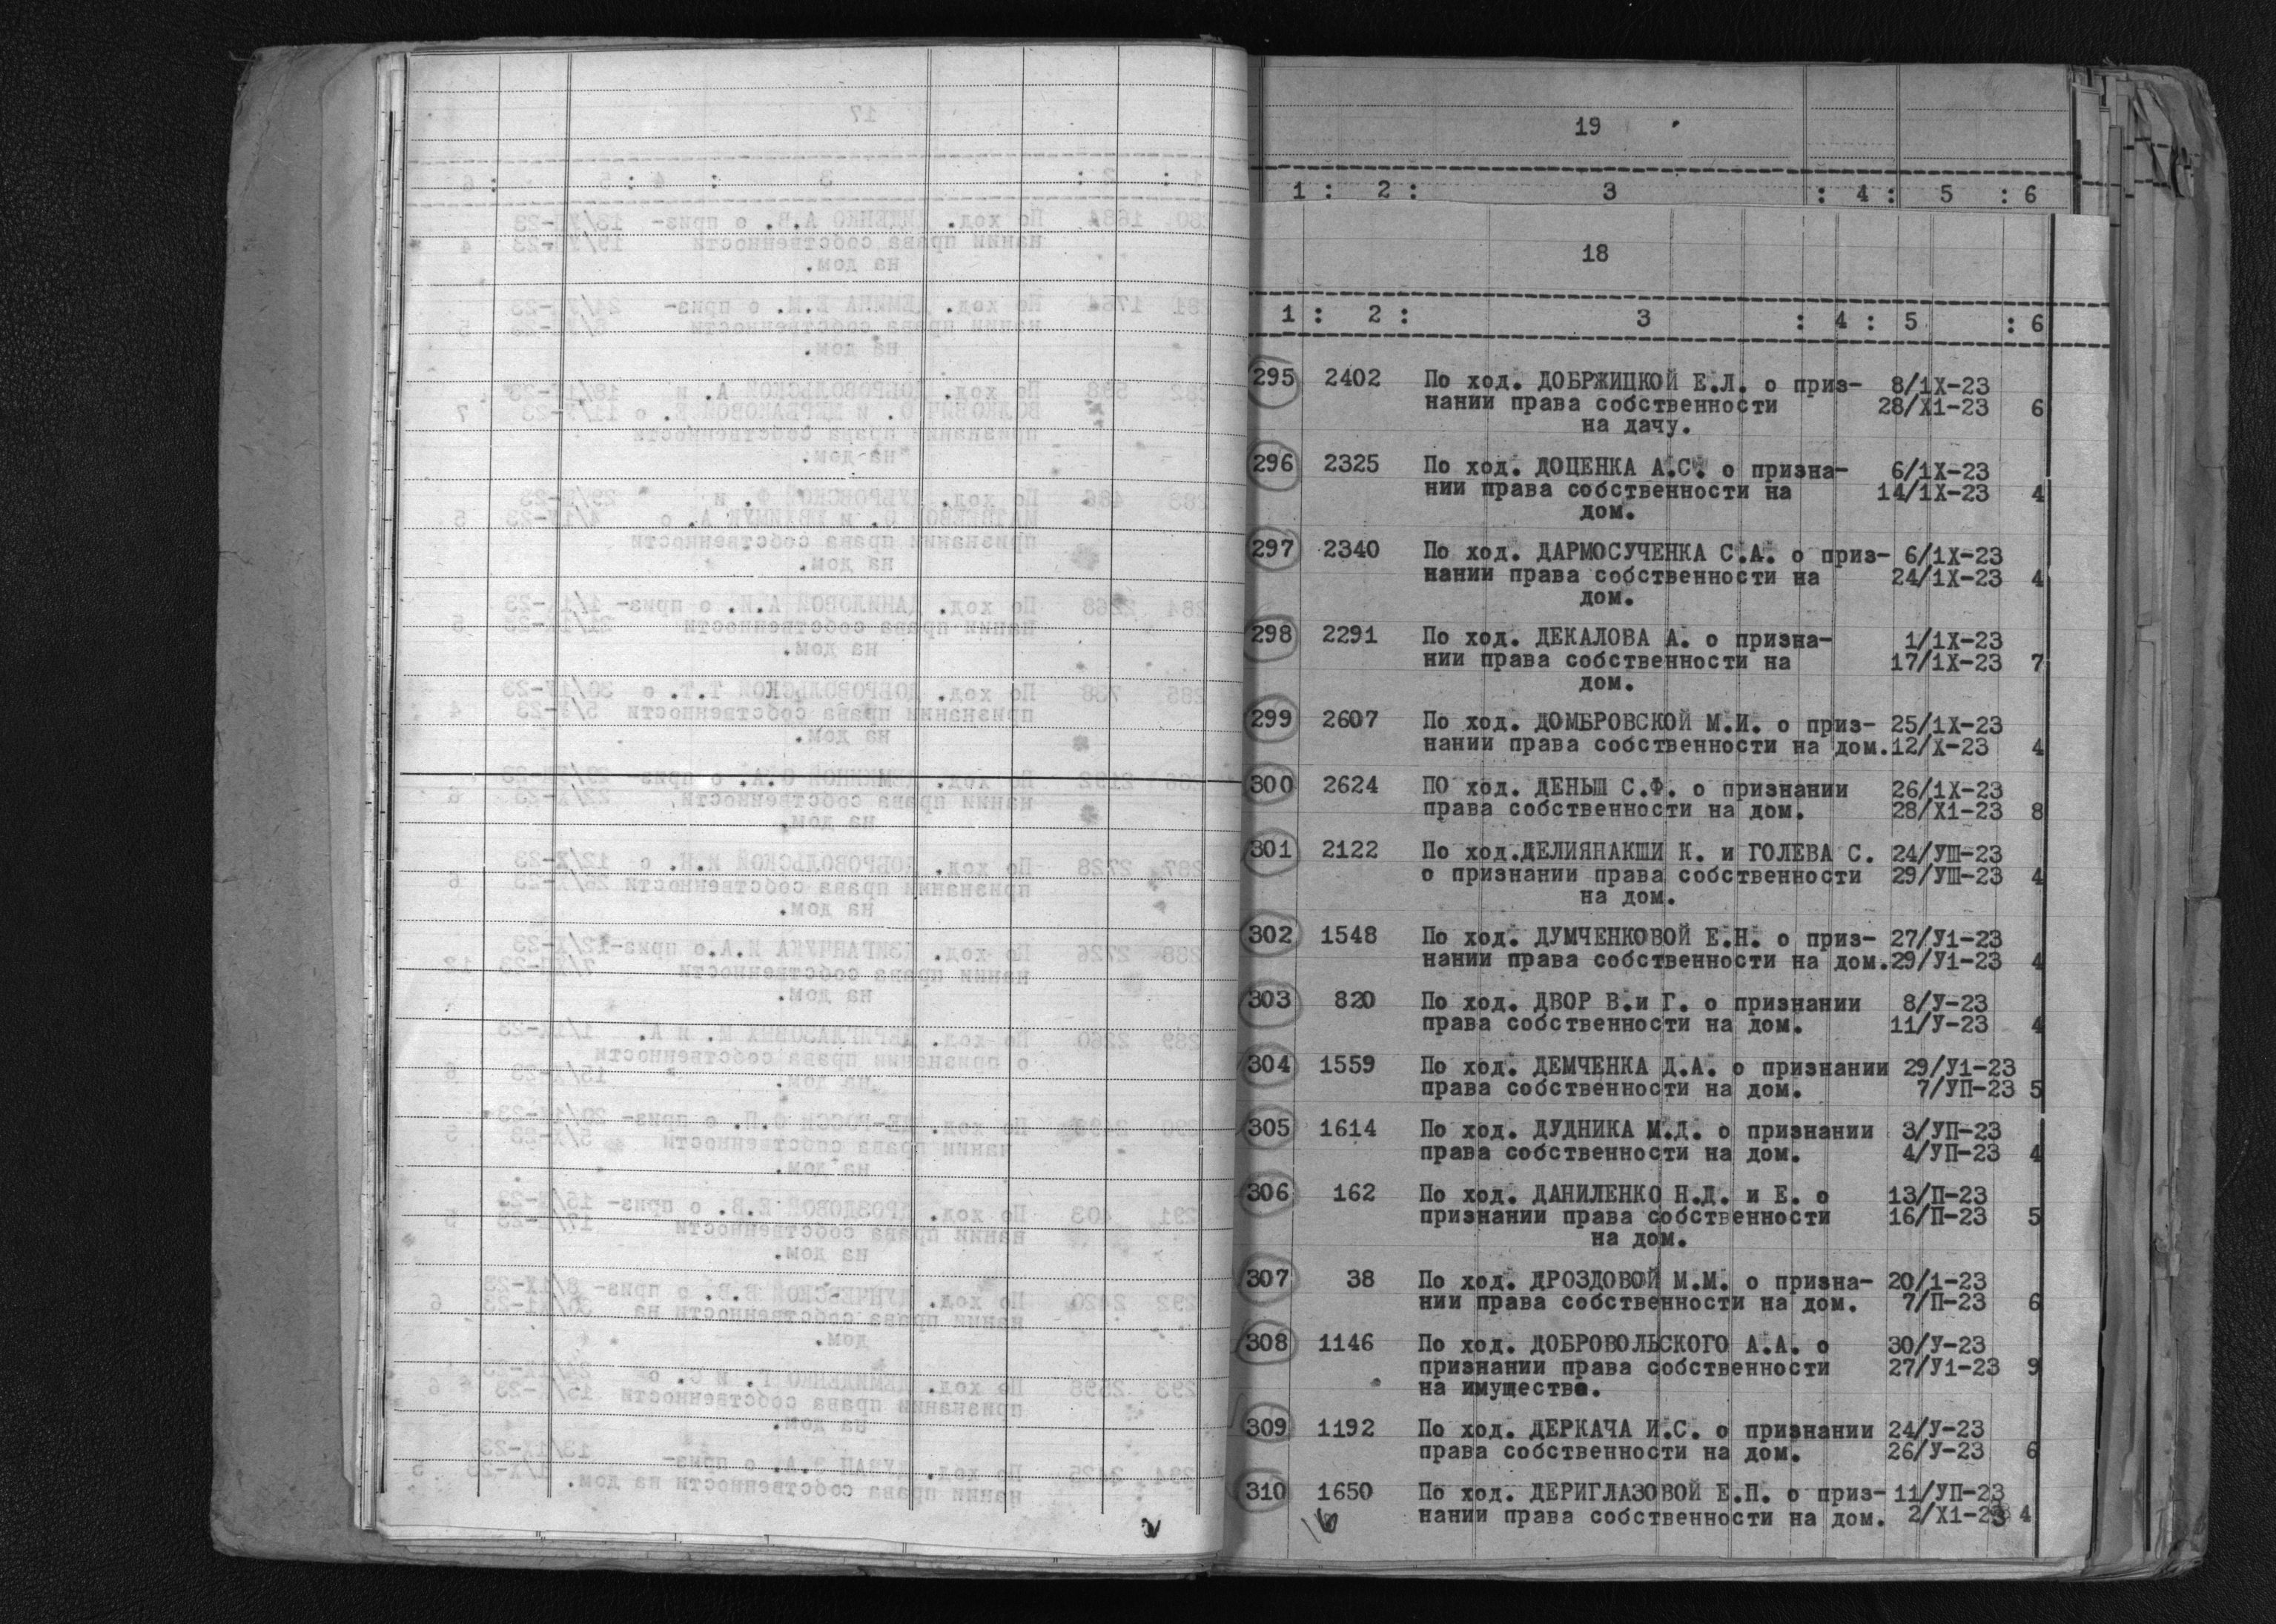 19
1 : 2 : 3 : 4 : 5 : 6
18
1 : 2 : 3 : 4 : 5 : 6
295 2402 По ход. ДОБРЖИЦКОЙ Е.Л. о приз- 8/1Х-23
нании права собственности 28/Х1-23 6
на дачу.
296 2325 По ход. ДОЦЕНКА А.С. о призна- 6/1Х-23
нии права собственности на 14/1Х-23 4
дом.
297 2340 По ход. ДАРМОСУЧЕНКА С.А. о приз- 6/1Х-23
нании права собственности на 24/1Х-23 4
дом.
298 2291 По ход. ДЕКАЛОВА А. о призна- 1/1Х-23
нии права собственности на 17/1Х-23 7
дом.
299 2607 По ход. ДОМБРОВСКОЙ М.И. о приз- 25/1Х-23
нании права собственности на дом. 12/Х-23 4
300 2624 ПО ход. ДЕНЬШ С.Ф. о признании 26/1Х-23
права собственности на дом. 28/Х1-23 8
301 2122 По ход.ДЕЛИЯНАКШИ К. и ГОЛЕВА С. 24/УШ-23
о признании права собственности 29/УШ-23 4
на дом.
302 1548 По ход. ДУМЧЕНКОВОЙ Е.Н. о приз- 27/У1-23
нании права собственности на дом. 29/У1-23 4
303 820 По ход. ДВОР В.и Г. о признании 8/У-23
права собственности на дом. 11/У-23 4
304 1559 По ход. ДЕМЧЕНКА Д.А. о признании 29/У1-23
права собственности на дом. 7/УП-23 5
305 1614 По ход. ДУДНИКА М.Д. о признании 3/УП-23
права собственности на дом. 4/УП-23 4
306 162 По ход. ДАНИЛЕНКО Н.Д. и Е. о 13/П-23
признании права собственности 16/П-23 5
на дом.
307 38 По ход. ДРОЗДОВОЙ М.М. о призна- 20/1-23
нии права собственности на дом. 7/П-23 6
308 1146 По ход. ДОБРОВОЛЬСКОГО А.А. о 30/У-23
признании права собственности 27/У1-23 9
на имущество.
309 1192 По ход. ДЕРКАЧА И.С. о признании 24/У-23
права собственности на дом. 26/У-23 6
310 1650 По ход. ДЕРИГЛАЗОВОЙ Е.П. о приз- 11/УП-23
нании права собственности на дом. 2/Х1-23 4